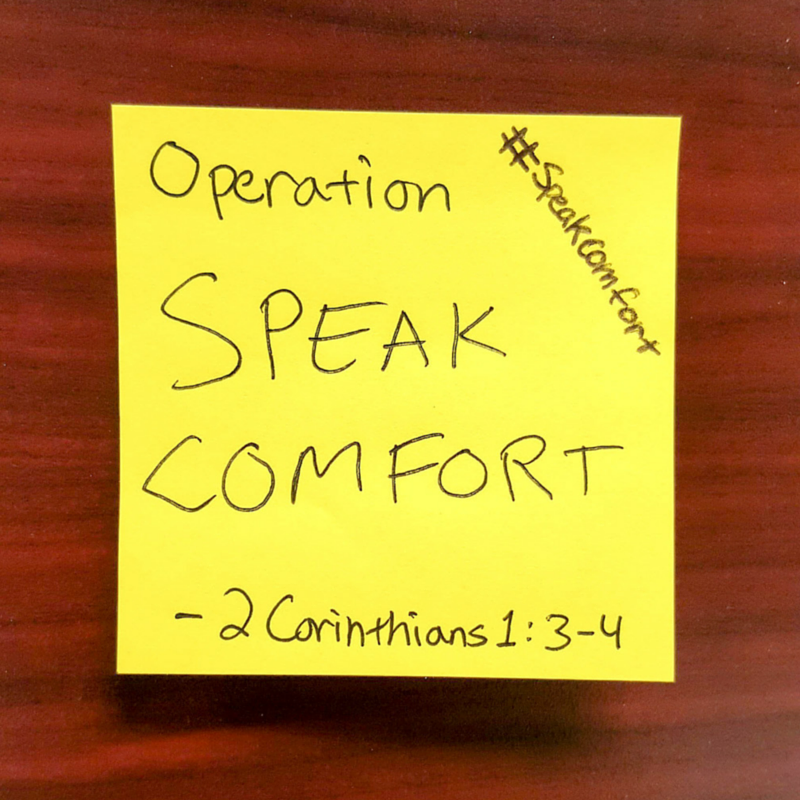 Operation
#Speakcomfort
SPEAK
COMFORT
- 2 Corinthians 1:3-4